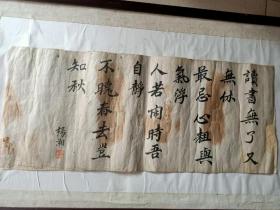 讀書無了又
無休
最忌心粗與
氣浮
人若閑時吾
自靜
不曉春去豈
知秋
楊湘